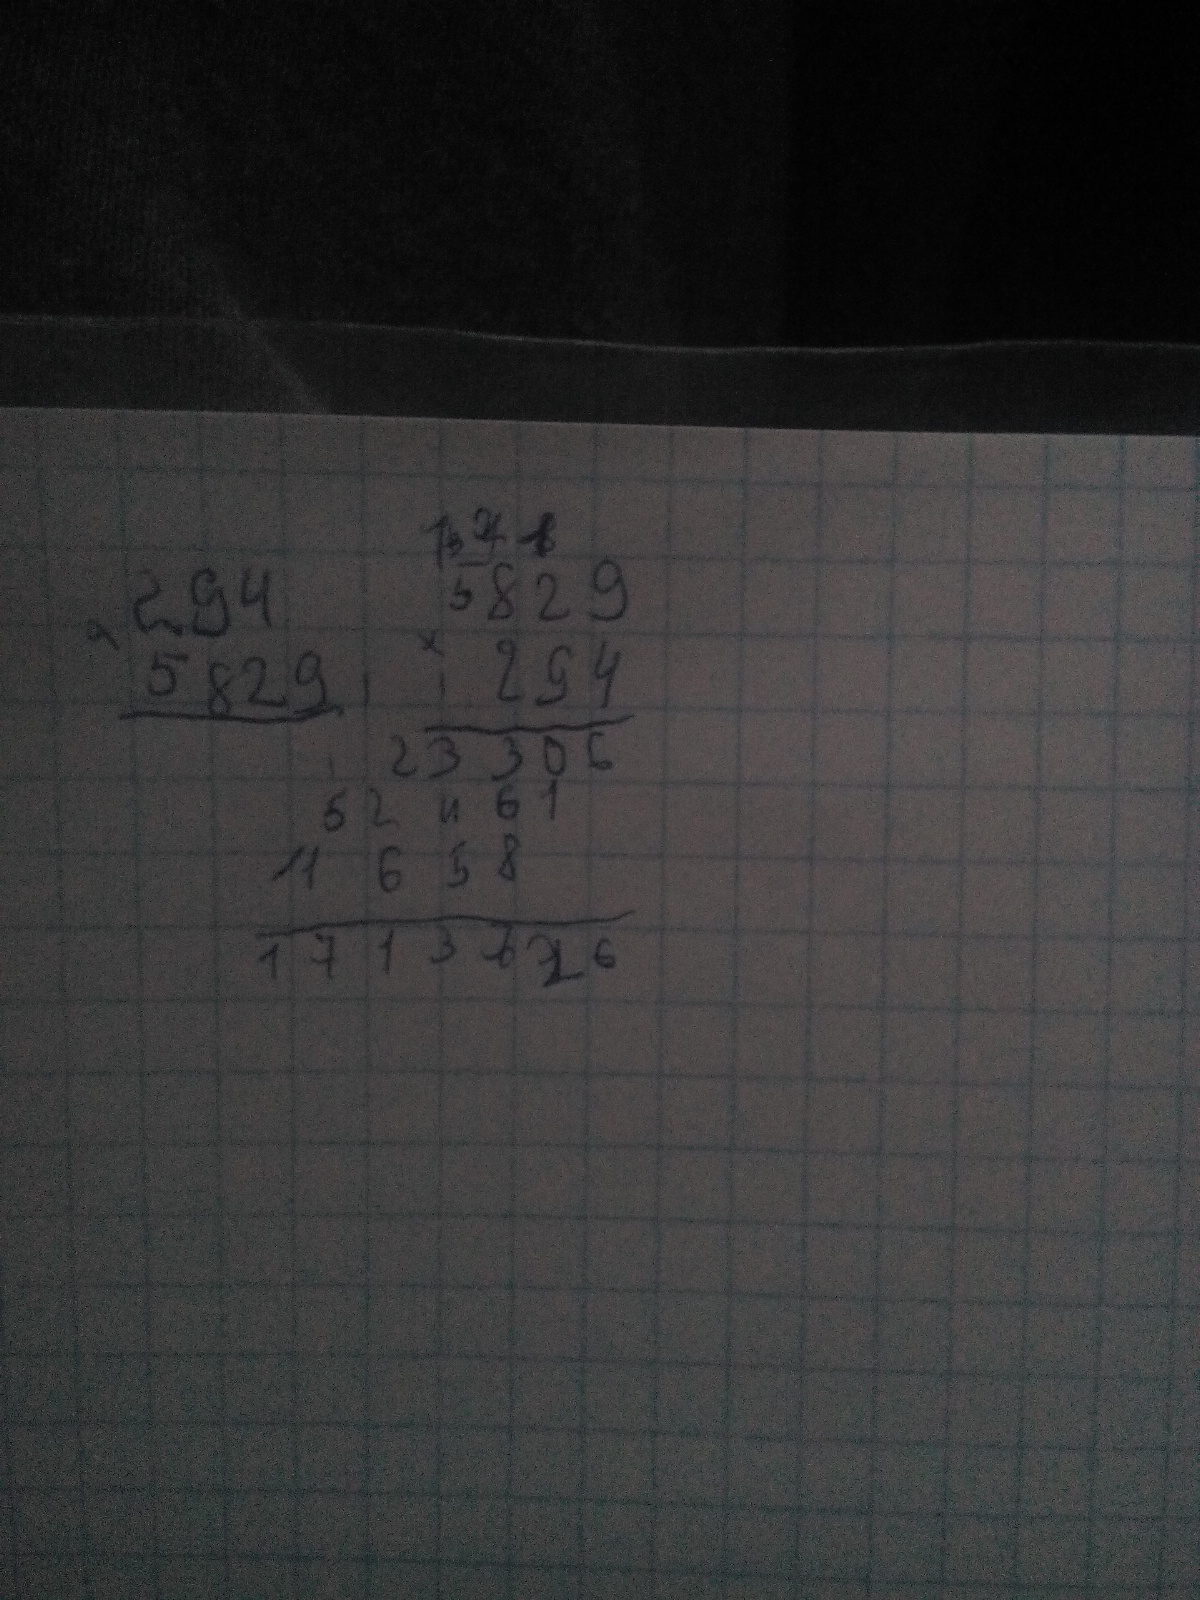 294
5829
5829
× 294
23306
52461
11658
1713626